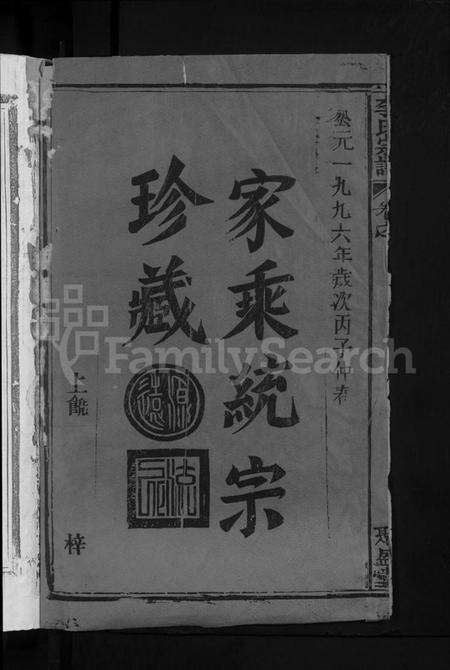 李氏宗譜
公元一九九六年歲次丙子仲春
家乘統宗
珍藏
源遠
流
上饒
梓
FamilySearch